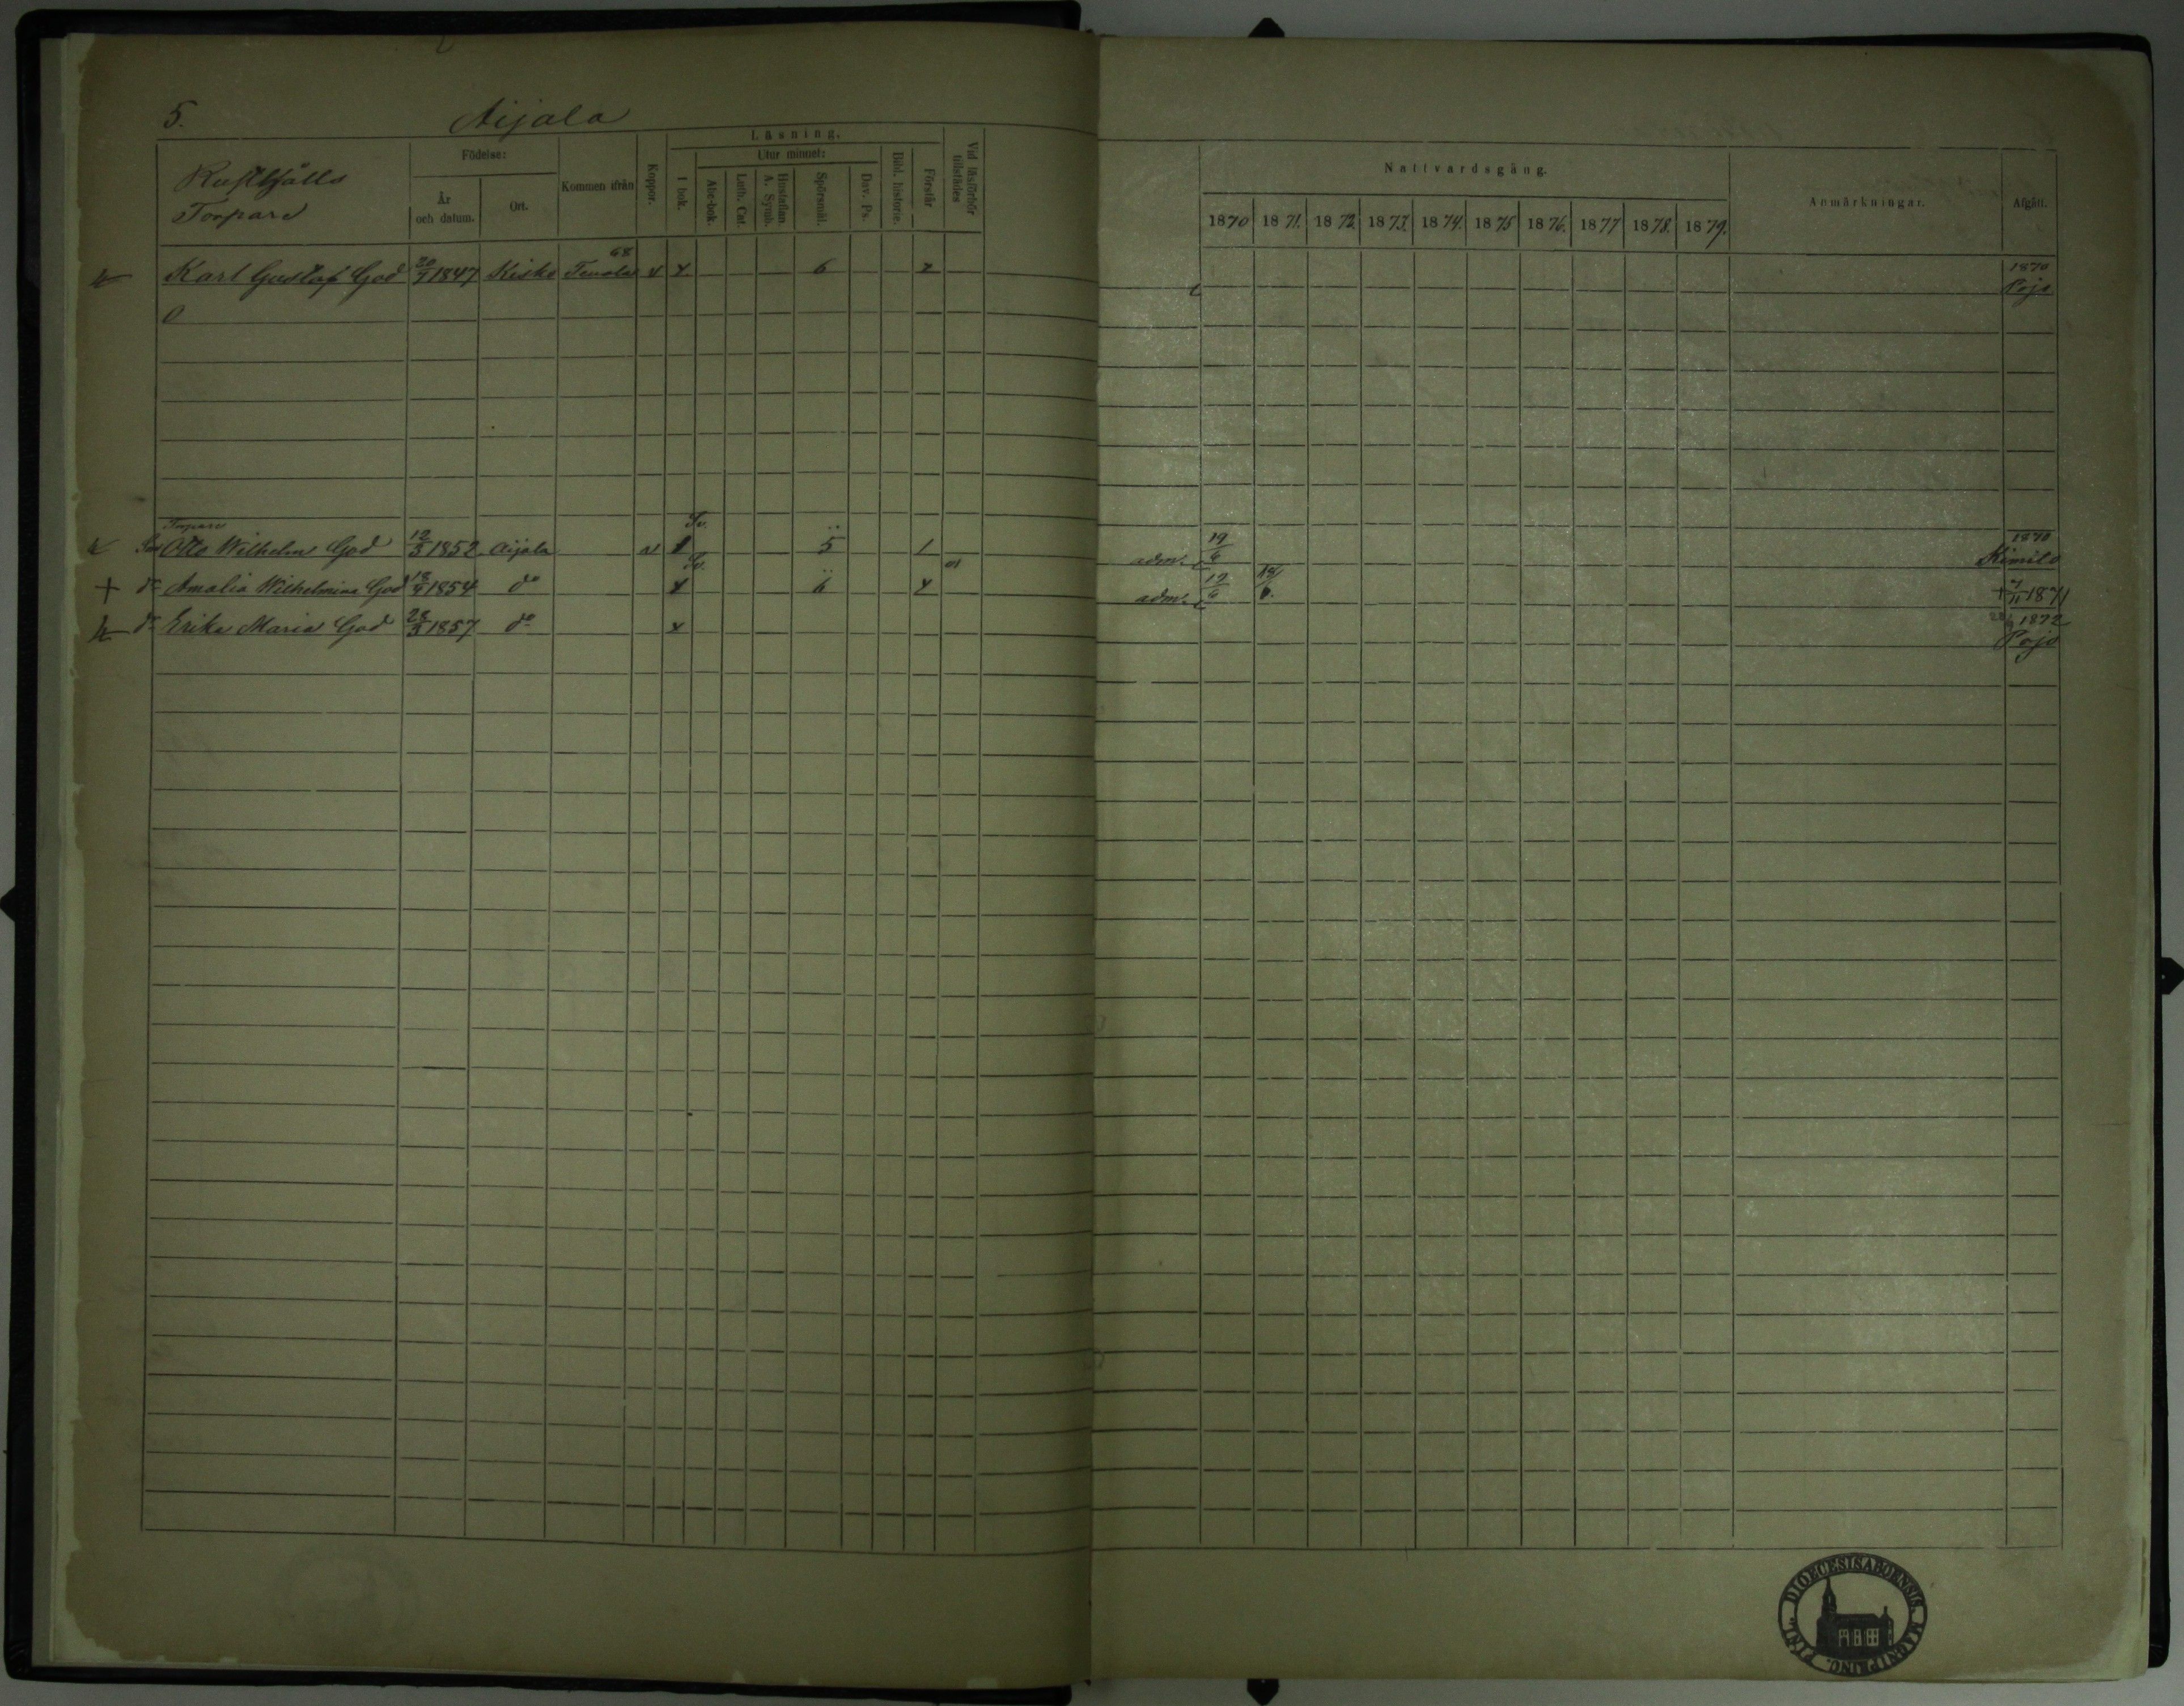 5. Aijala
Torpare
Födelse:
År och datum.
Ort.
Kommen ifrån
Koppor.
Läsning.
I bok.
Utur minnet:
Abc-bok.
Luth. Cat.
Hustaflan. A. Symb.
Spörsmål.
Dav. Ps.
Bibl. historie.
Förstår
Vid läsförhör tillstädes
Nattvardsgång.
1870 1871. 1872. 1873. 1874. 1875 1876. 1877 1878. 1879.
Anmärkningar.
Afgått.
Karl Gustaf God 20/7 1847 Kisko 68 Tenala x x 6 x 1870 Pojo
Torpare
Son Otto Wilhelm God 12/3 1852 Aijala Sv. 1 5 1 adm. 19/6 1870 Kimito
dr Amalia Wilhelmina God 18/4 1854 do Sv. x 6 x adm. 19/6 18/6. + 7/11 1871
dr Erika Maria God 28/3 1857 do x 1872 Pojo